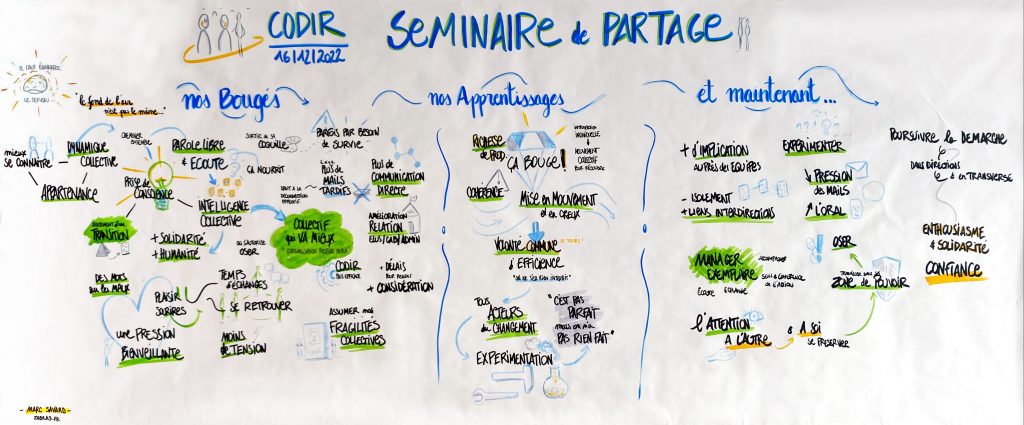 CODIR
16/12/2022
SEMINAIRE de PARTAGE
IL FAUT
LE CERVEAU
"le fond de l'air
n'est pas le même..."
nos Bougés
mieux
SE CONNAITRE
DYNAMIQUE
COLLECTIVE
APPARTENANCE
CHEMINER
ENSEMBLE
Prise de
CONSCIENCE
PAROLE LIBRE
& ECOUTE
SORTIR DE SA
COQUILLE
ÇA NOURRIT
PARFOIS PAR BESOIN
DE SURVIE
PLUS DE
MAILS
TARDIFS
DROIT A LA
DECONNEXION
PLUS DE
COMMUNICATION
DIRECTE
INTELLIGENCE
COLLECTIVE
TRANSITION
+ SOLIDARITÉ
+ HUMANITÉ
ON S'AUTORISE
OSER
COLLECTIF
qui VA MIEUX
AMELIORATION
RELATION
ELUS/CAB/ADMIN
DES MOTS
sur les MAUX
PLAISIR
SOURIRES
TEMPS
D'ÉCHANGES
SE RETROUVER
CODIR
PLUS EFFICACE
+ DÉLAIS
POUR PRODUIRE
+ CONSIDÉRATION
une PRESSION
BIENVEILLANTE
MOINS
DE TENSION
ASSUMER nos
FRAGILITÉS
COLLECTIVES
nos Apprentissages
RICHESSE
de PROD
ÇA BOUGE!
INDIVIDUELLE
MOUVEMENT
COLLECTIF
COHÉRENCE
MISE en MOUVEMENT
et en CREUX
VOLONTÉ COMMUNE
D'EFFICIENCE
TOUS
ACTEURS
du CHANGEMENT
"C'EST PAS
PARFAIT
mais on n'a
PAS RIEN FAIT"
EXPERIMENTATION
et maintenant...
+ D'IMPLICATION
AUPRÈS DES EQUIPES
- ISOLEMENT
+ LIENS INTERDIRECTIONS
EXPÉRIMENTER
↘ PRESSION
des MAILS
↗ L'ORAL
MANAGER
EXEMPLAIRE
ÉCOUTE
OSER
TRAVAILLER DANS SA
ZONE de POUVOIR
l'ATTENTION
A L'AUTRE
& A SOI
SE PRÉSERVER
POURSUIVRE la DEMARCHE
DANS DIRECTIONS
& en TRANSVERSE
ENTHOUSIASME
& SOLIDARITÉ
CONFIANCE
- MARC SAVARD -